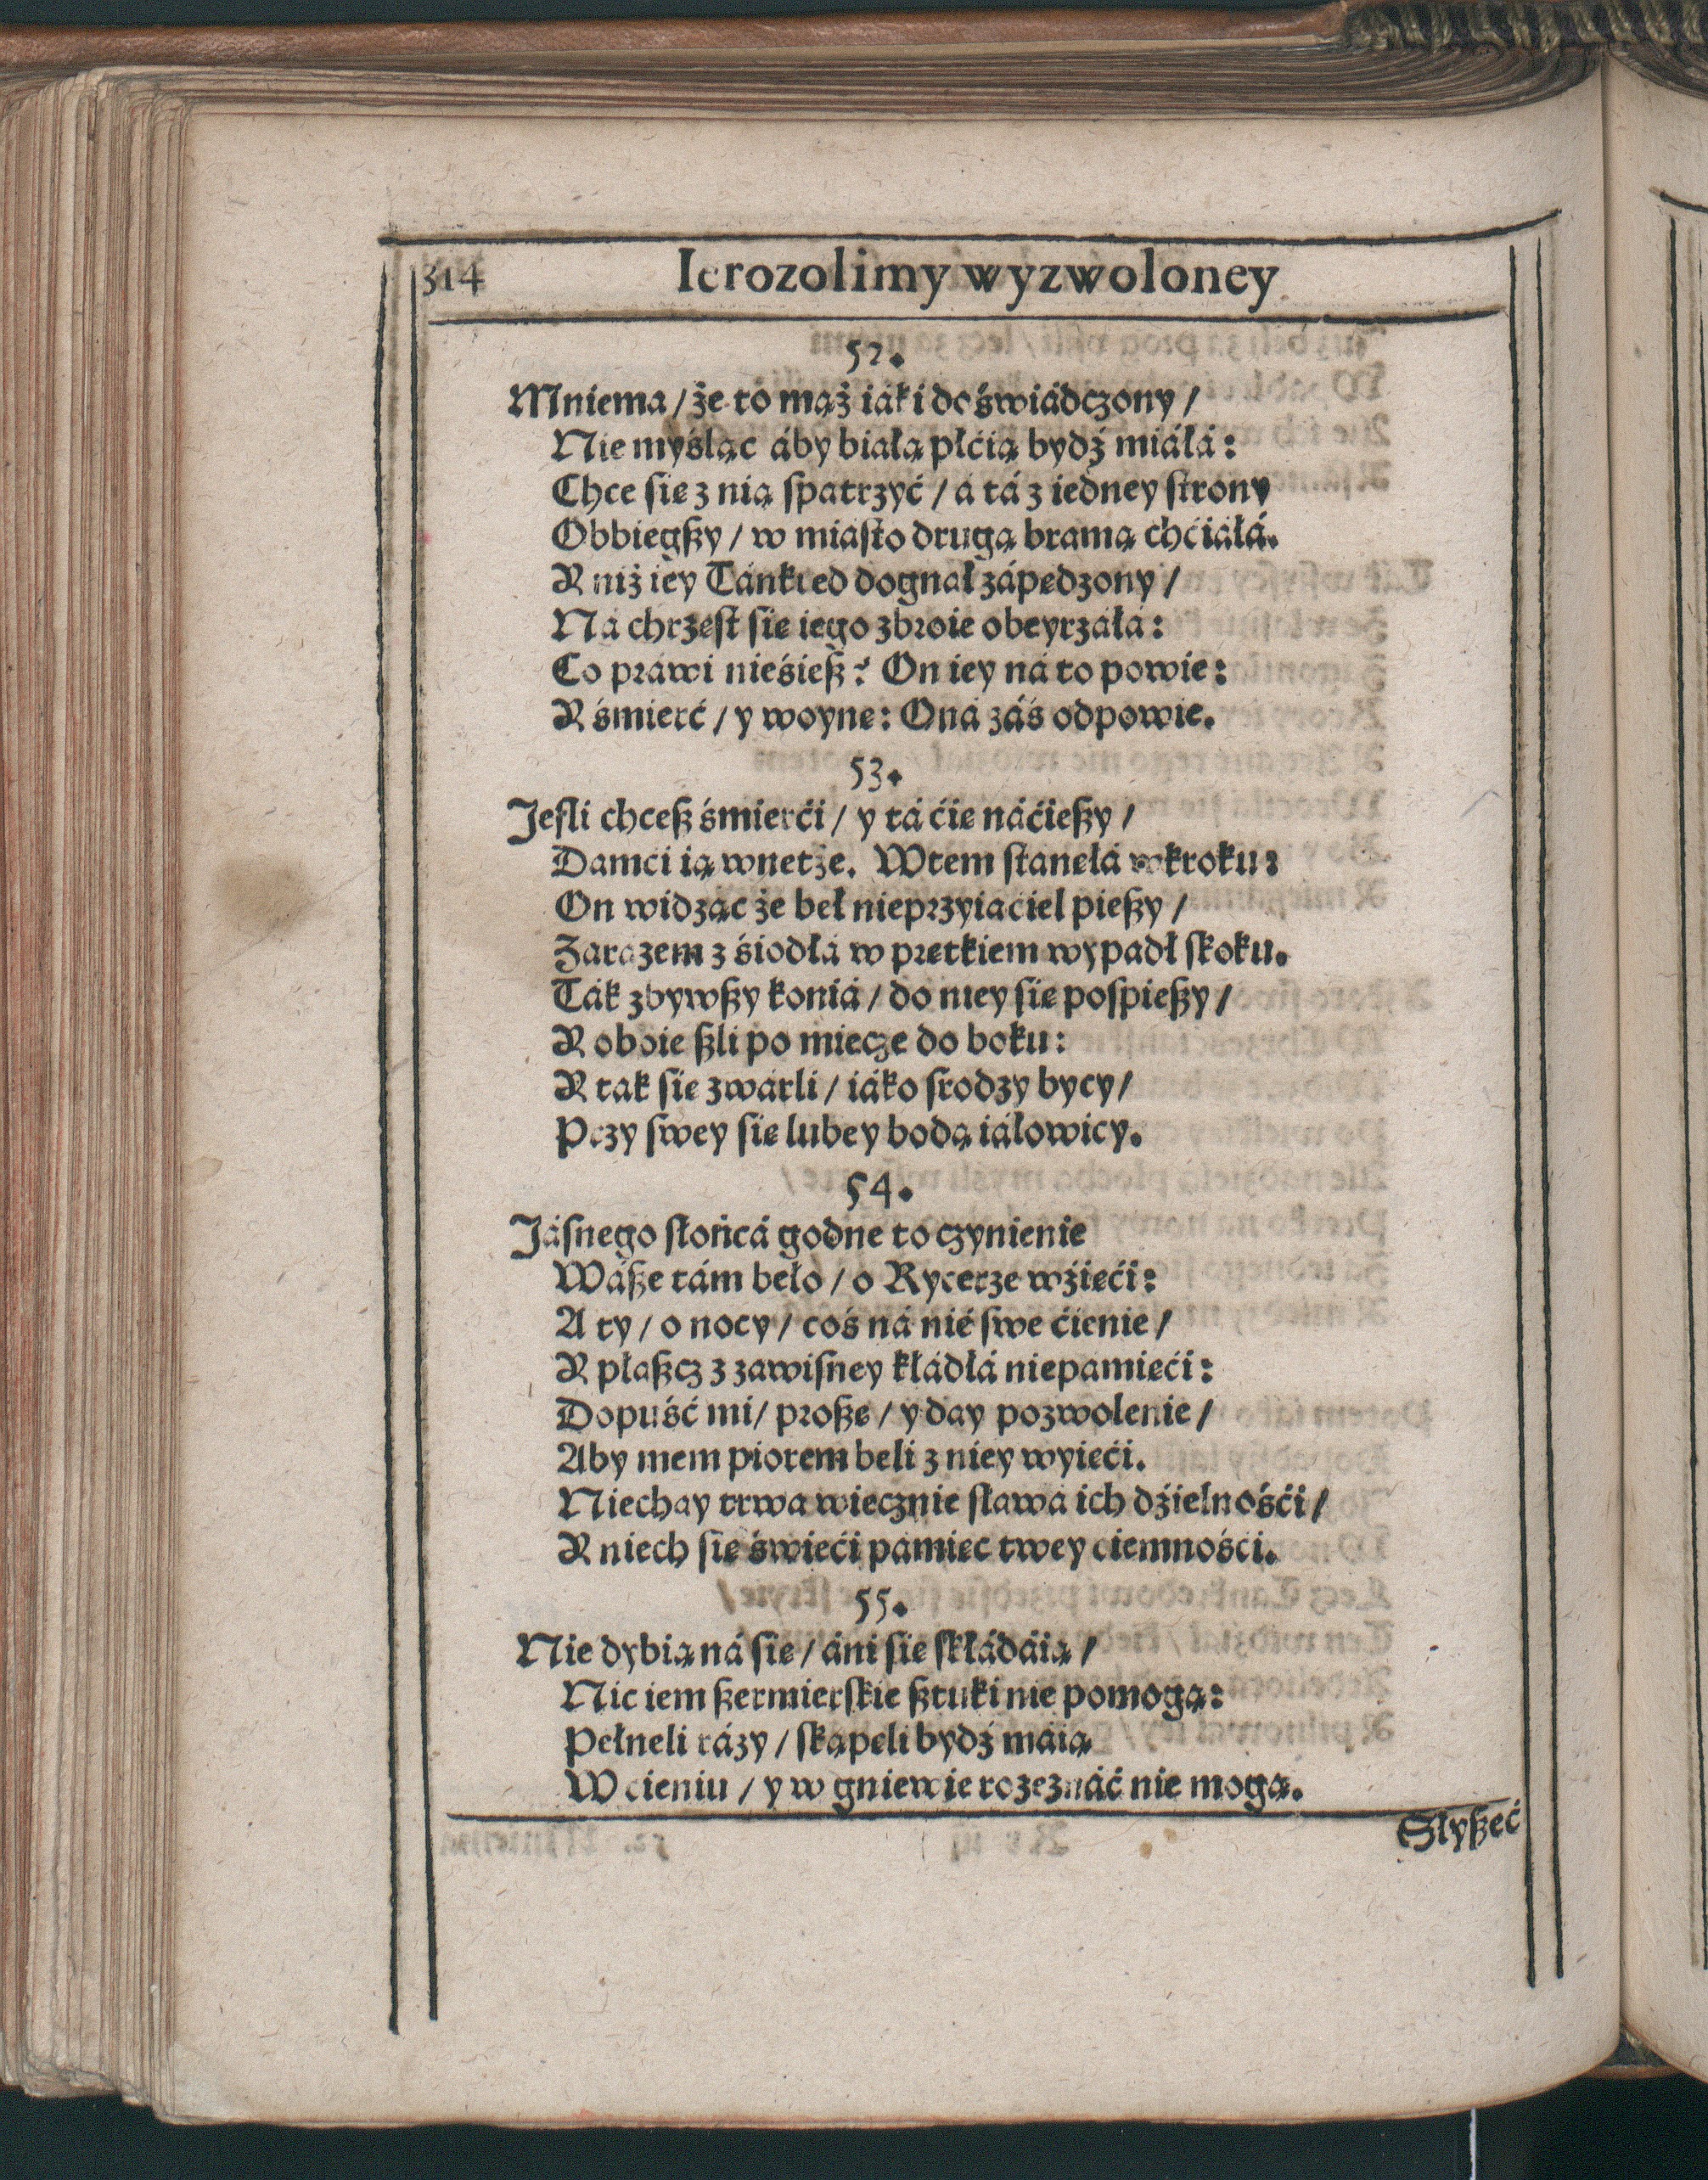 314 Ierozolimy wyzwoloney
52.
Mniema / że to mąż iáki doświádczony /
Nie myśląc áby białą płćią bydź miáłá:
Chce się z nią spatrzyć / á tá z iedney strony
Obbiegszy / w miásto drugą bramą chćiáłá.
A niż iey Tánkred dognał zápędzony /
Ná chrzęst się iego zbroie obeyrzáłá:
Co práwi nieśiesz? On iey ná to powie:
A śmierć / y woynę: Oná záś odpowie.
53.
Jesli chcesz śmierći / y tá ćię náćieszy /
Damci ią wnetże. Wtem stánęłá wkroku:
On widząc że beł nieprzyiaciel pieszy /
Zarázem z śiodłá w prętkiem wypadł skoku.
Ták zbywszy koniá / do niey się pospieszy /
A oboie szli po miecze do boku:
A tak się zwárli / iáko srodzy bycy /
Przy swey się lubey bodą iáłowicy.
54.
Jásnego słońcá godne to czynienie
Wásze tám beło / o Rycerze wźięći:
A ty / o nocy / coś ná nię swe ćienie /
A płaszcz z zawisney kłádłá niepamięći:
Dopuść mi / proszę / y day pozwolenie /
Aby mem piorem beli z niey wyięći.
Niechay trwa wiecznie sława ich dźielnośći /
A niech się święći pámięć twey ciemnośći.
55.
Nie dybią ná się / áni się skłádáią /
Nic iem szermierskie sztuki nie pomogą:
Pełneli rázy / skąpeli bydź máią
W cieniu / y w gniewie rozeznáć nie mogą.
Słyszeć